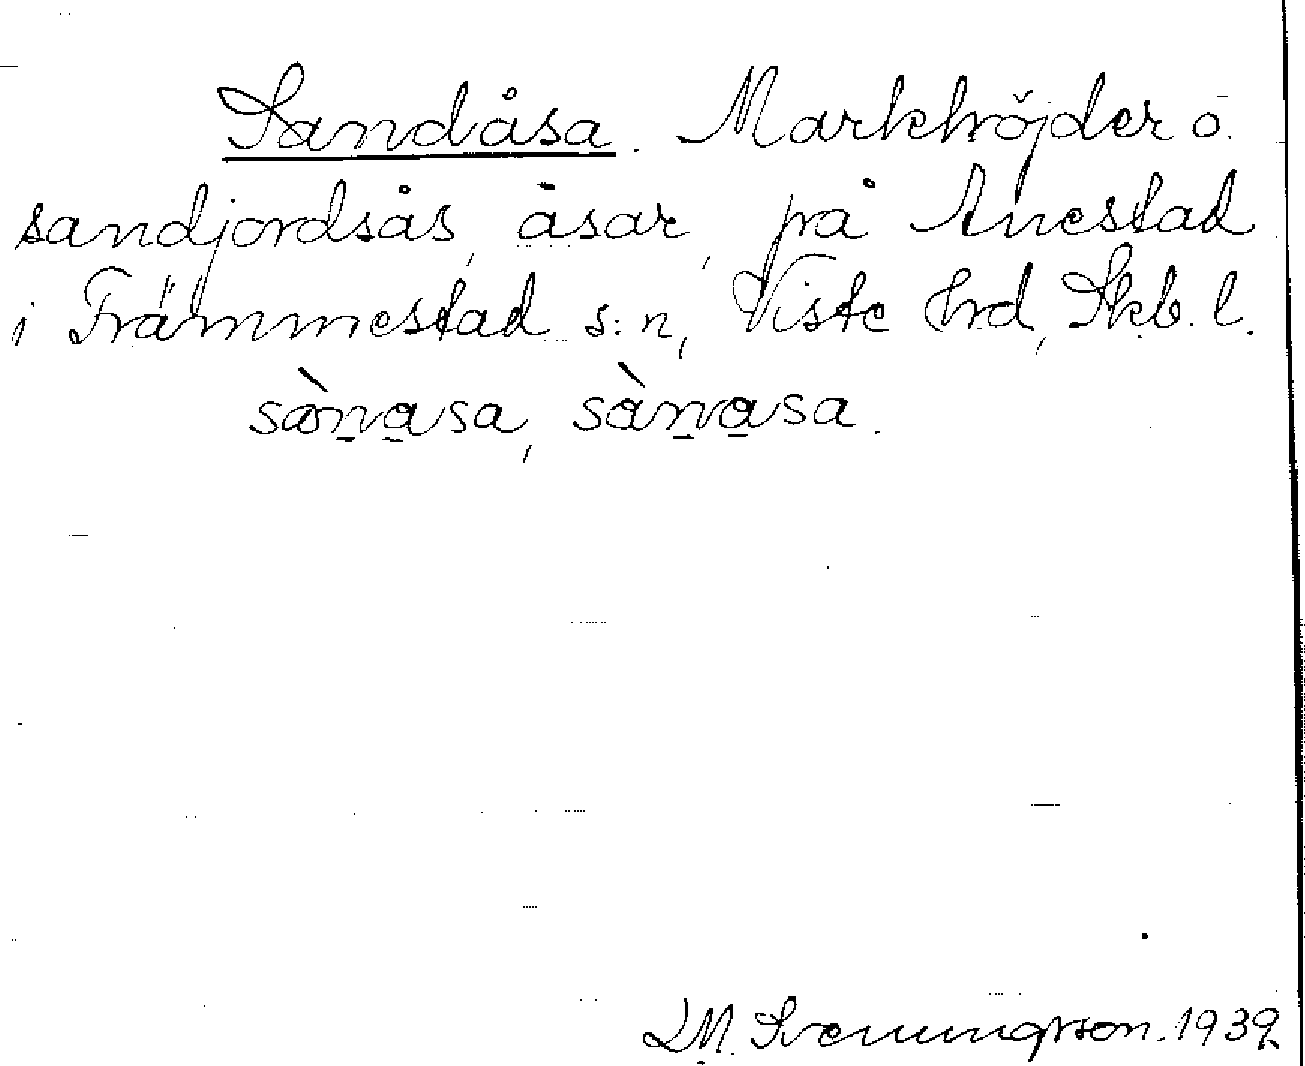 Sandåsa. Markhöjder o.
sandjordsås, åsar, på Anestad
i Främmestad s:n, Viste hrd, Skb. l.
sànasa, sànasa.
LM. Svenungsson. 1939